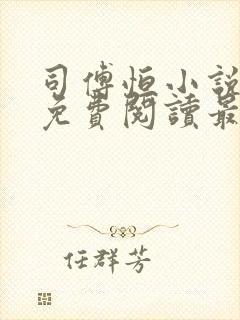 司傅恒小說
免費閱讀最
任群芳